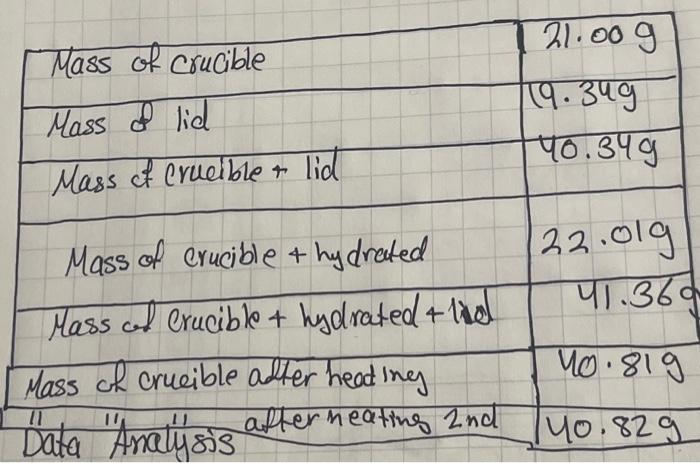 Mass of crucible 21.00 g
Mass of lid 19.34g
Mass of crucible + lid 40.34g
Mass of crucible + hydrated 22.01g
Mass of crucible + hydrated + lid 41.36g
Mass of crucible after heating 40.81g
" " " after heating 2nd 40.82g
Data Analysis